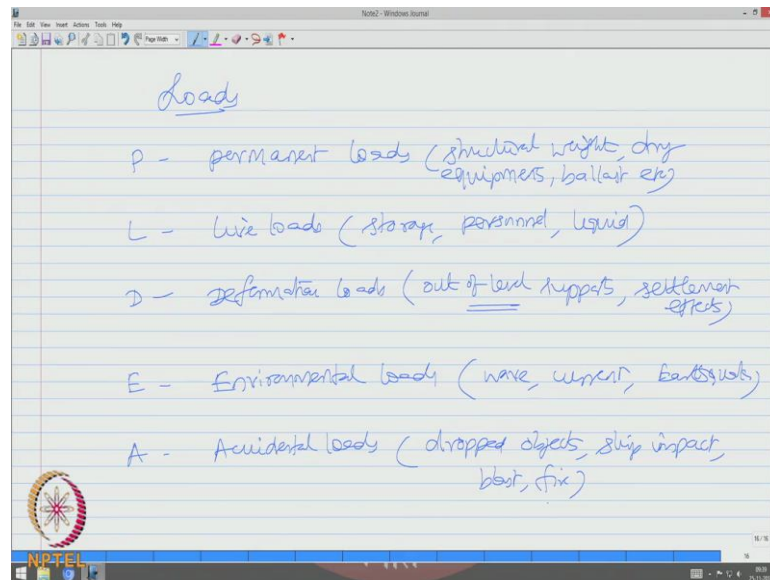 Note2 - Windows Journal
File Edit View Insert Actions Tools Help
Page Width
Loads
P - permanent loads (structural weight, dry
equipments, ballast etc)
L - Live loads (storage, personnel, liquid)
D - Deformation loads (out of level supports, settlement
effects)
E - Environmental loads (wave, current, Earthquake)
A - Accidental loads (dropped objects, ship impact,
blast, fire)
NPTEL
16 / 16
16
09:39